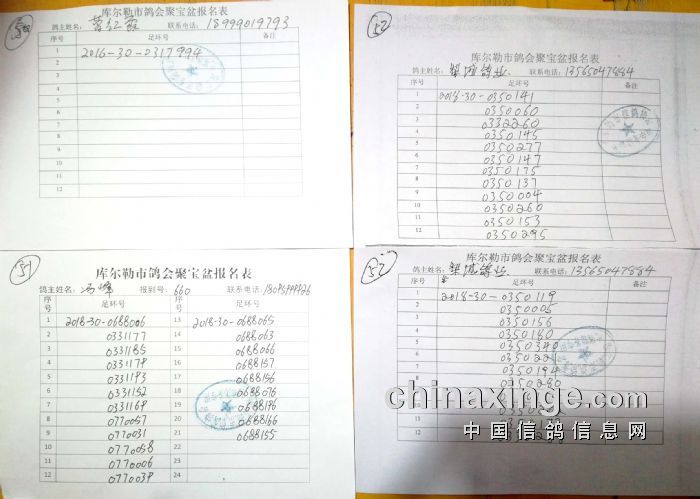 库尔勒市鸽会聚宝盆报名表
鸽主姓名： 联系电话：18999019793
序号 足环号 备注
1 2016-30-0317994
2
3
4
5
6
7
8
9
10
11
12
52
库尔勒市鸽会聚宝盆报名表
鸽主姓名： 联系电话：13565047884
序号 足环号 备注
1 2018-30-0350141
2 0350060
3 0332260
4 0350145
5 0350277
6 0350147
7 0350175
8 0350137
9 0350004
10 0350260
11 0350153
12 0350295
51
库尔勒市鸽会聚宝盆报名表
鸽主姓名：冯峰 报到号：660 联系电话：
序号 足环号 序号 足环号
1 2018-30-0688006 13 2018-30-0688065
2 0331177 14 0688063
3 0331185 15 0688066
4 0331179 16 0688157
5 0331193 17 0688156
6 0331152 18 0688076
7 0331169 19 0688196
8 0770057 20 0688166
9 0770031 21 0688155
10 0770058 22
11 0770006 23
12 0770039 24
52
库尔勒市鸽会聚宝盆报名表
鸽主姓名： 联系电话：13565047884
序号 足环号 备注
1 2018-30-0350119
2 0350005
3 0350156
4 0350180
5 0350340
6
7 0350194
8 0350280
chinaxinge.com
中国信鸽信息网
12